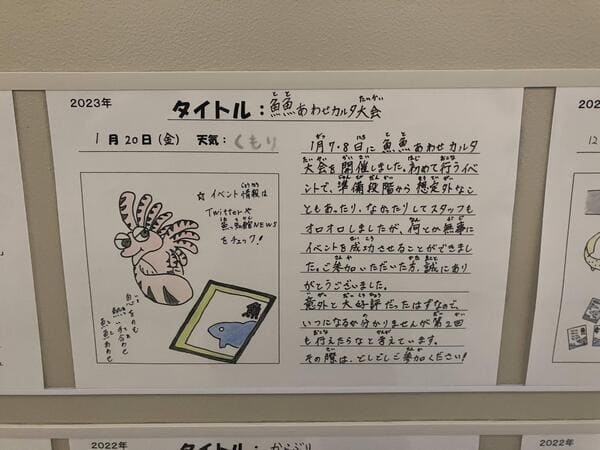 2023年
タイトル：魚魚あわせカルタ大会
1月20日(金) 天気：くもり
☆イベント情報は
Twitterや
NEWS
をチェック！
1月7・8日に魚魚あわせカルタ
大会を開催しました。初めて行うイベ
ントで、準備段階から想定外なこ
ともあったり、なかったりしてスタッフも
オロオロしましたが、何とか無事に
イベントを成功させることができまし
た。ご参加いただいた方、誠にあり
がとうございました。
意外と大好評だったはずなので、
いつになるか分かりませんが第2回
も行えたらなと考えています。
その際は、どしどしご参加ください！
2022年
タイトル：からぶり
2022年